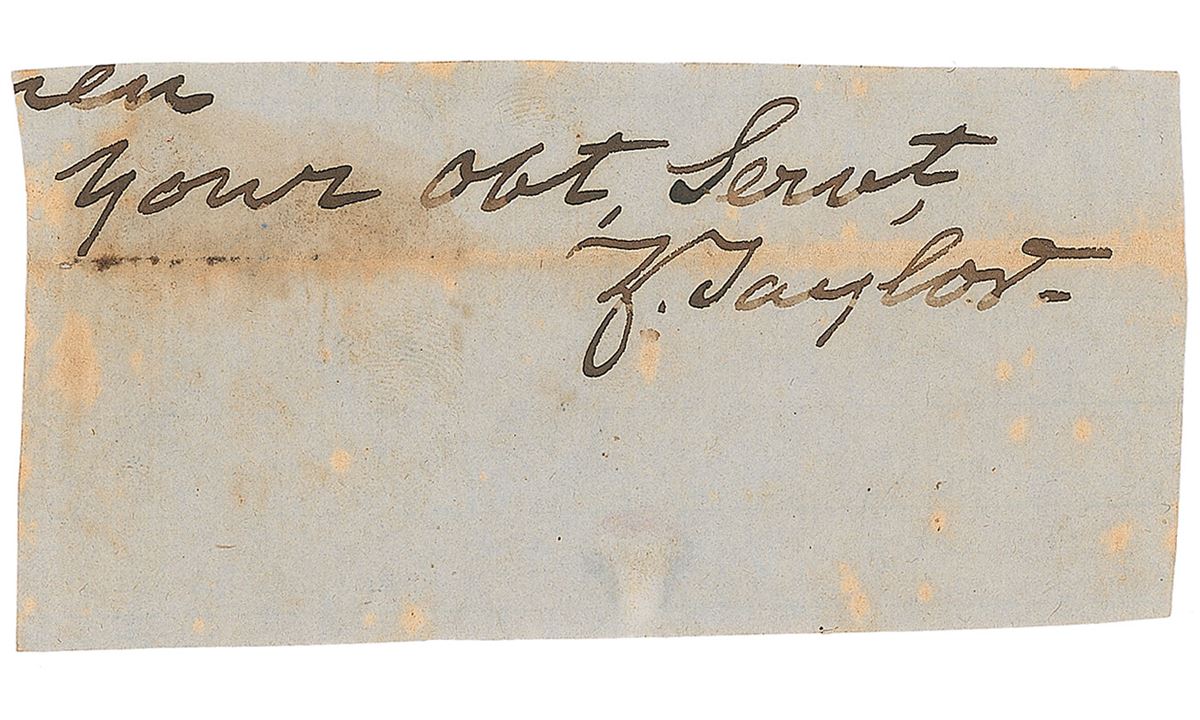 Your Obt, Servt,
Z. Taylor-